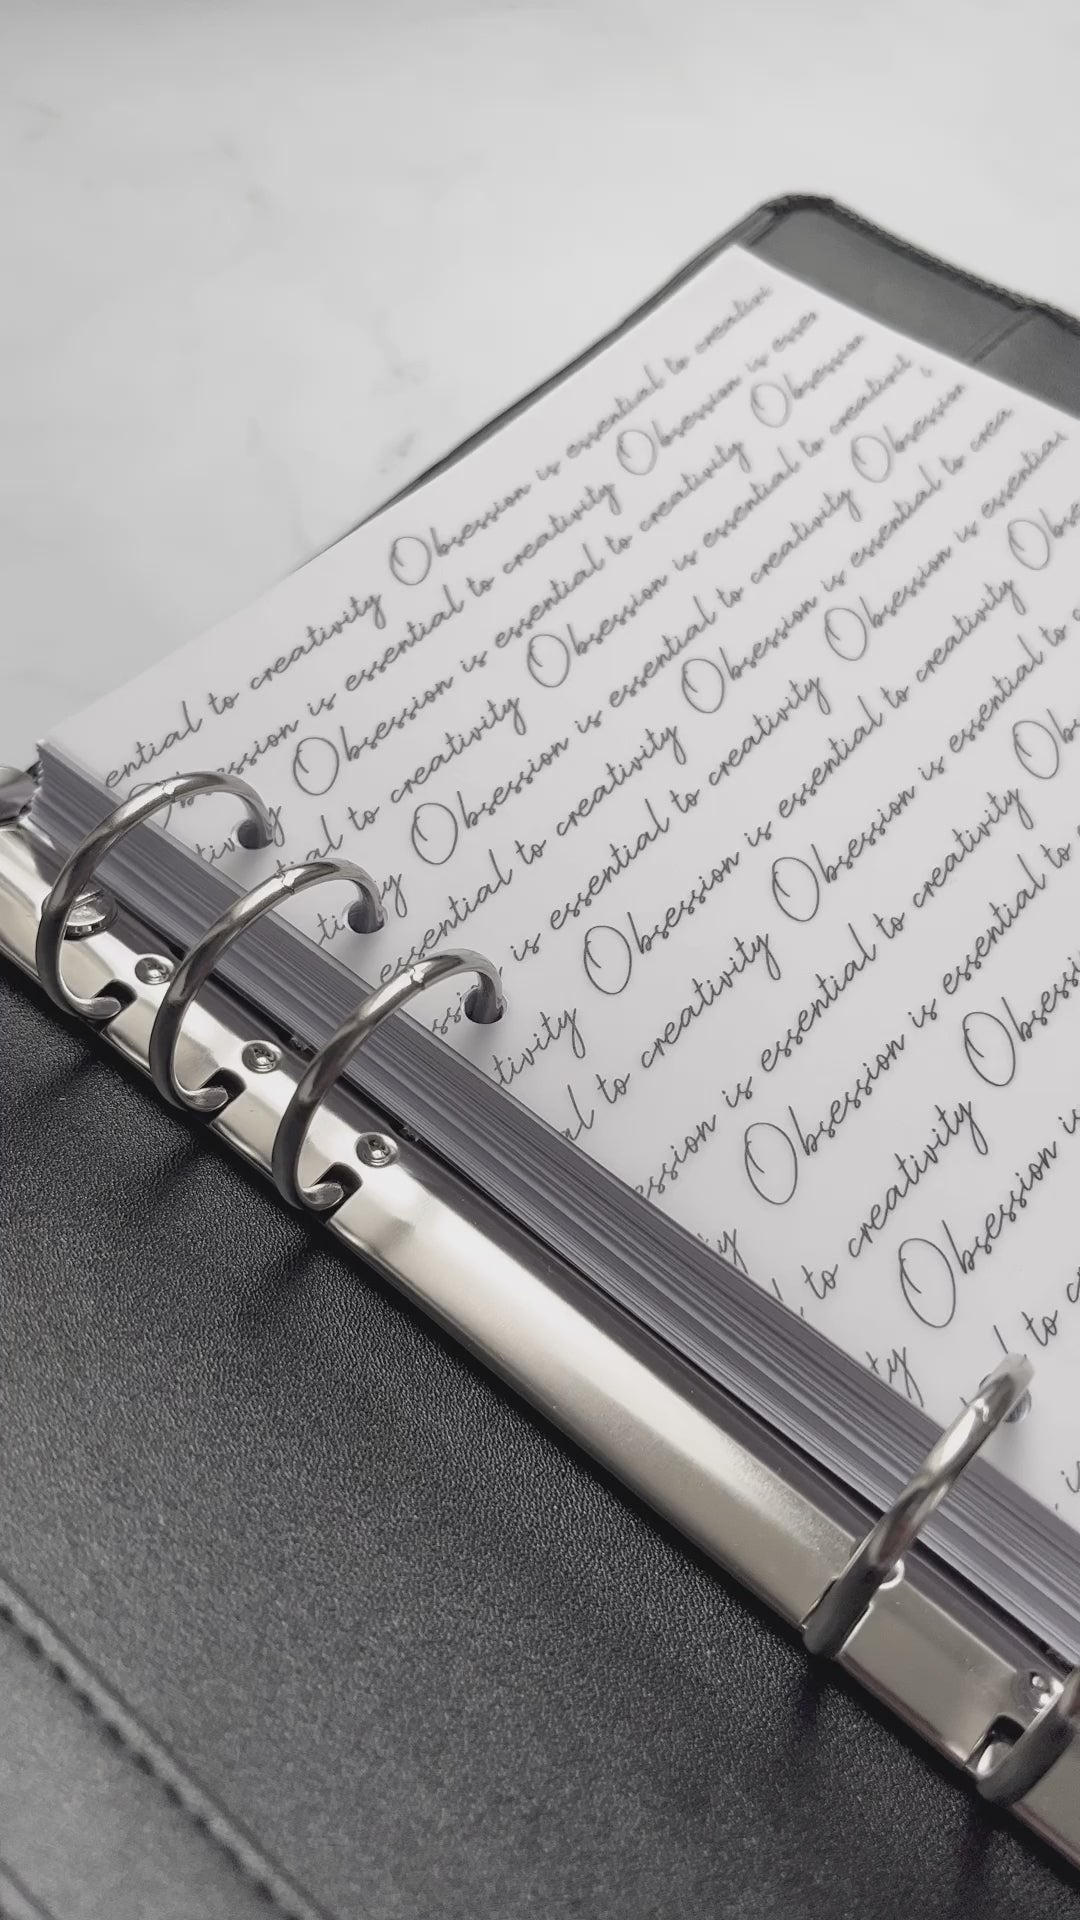 ential to creativity Obsession is essential to creativi
Obsession is essential to creativity Obsession is essen
tivity Obsession is essential to creativity Obsession
ential to creativity Obsession is essential to creativit
ty Obsession is essential to creativity Obsession
essential to creativity Obsession is essential to crea
ssi is essential to creativity Obsession is essential
tivity Obsession is essential to creativity Obse
al to creativity Obsession is essential to
ession is essential to creativity Obs
ity Obsession is essential to
to creativity Obsessi
ty Obsession is
to
is